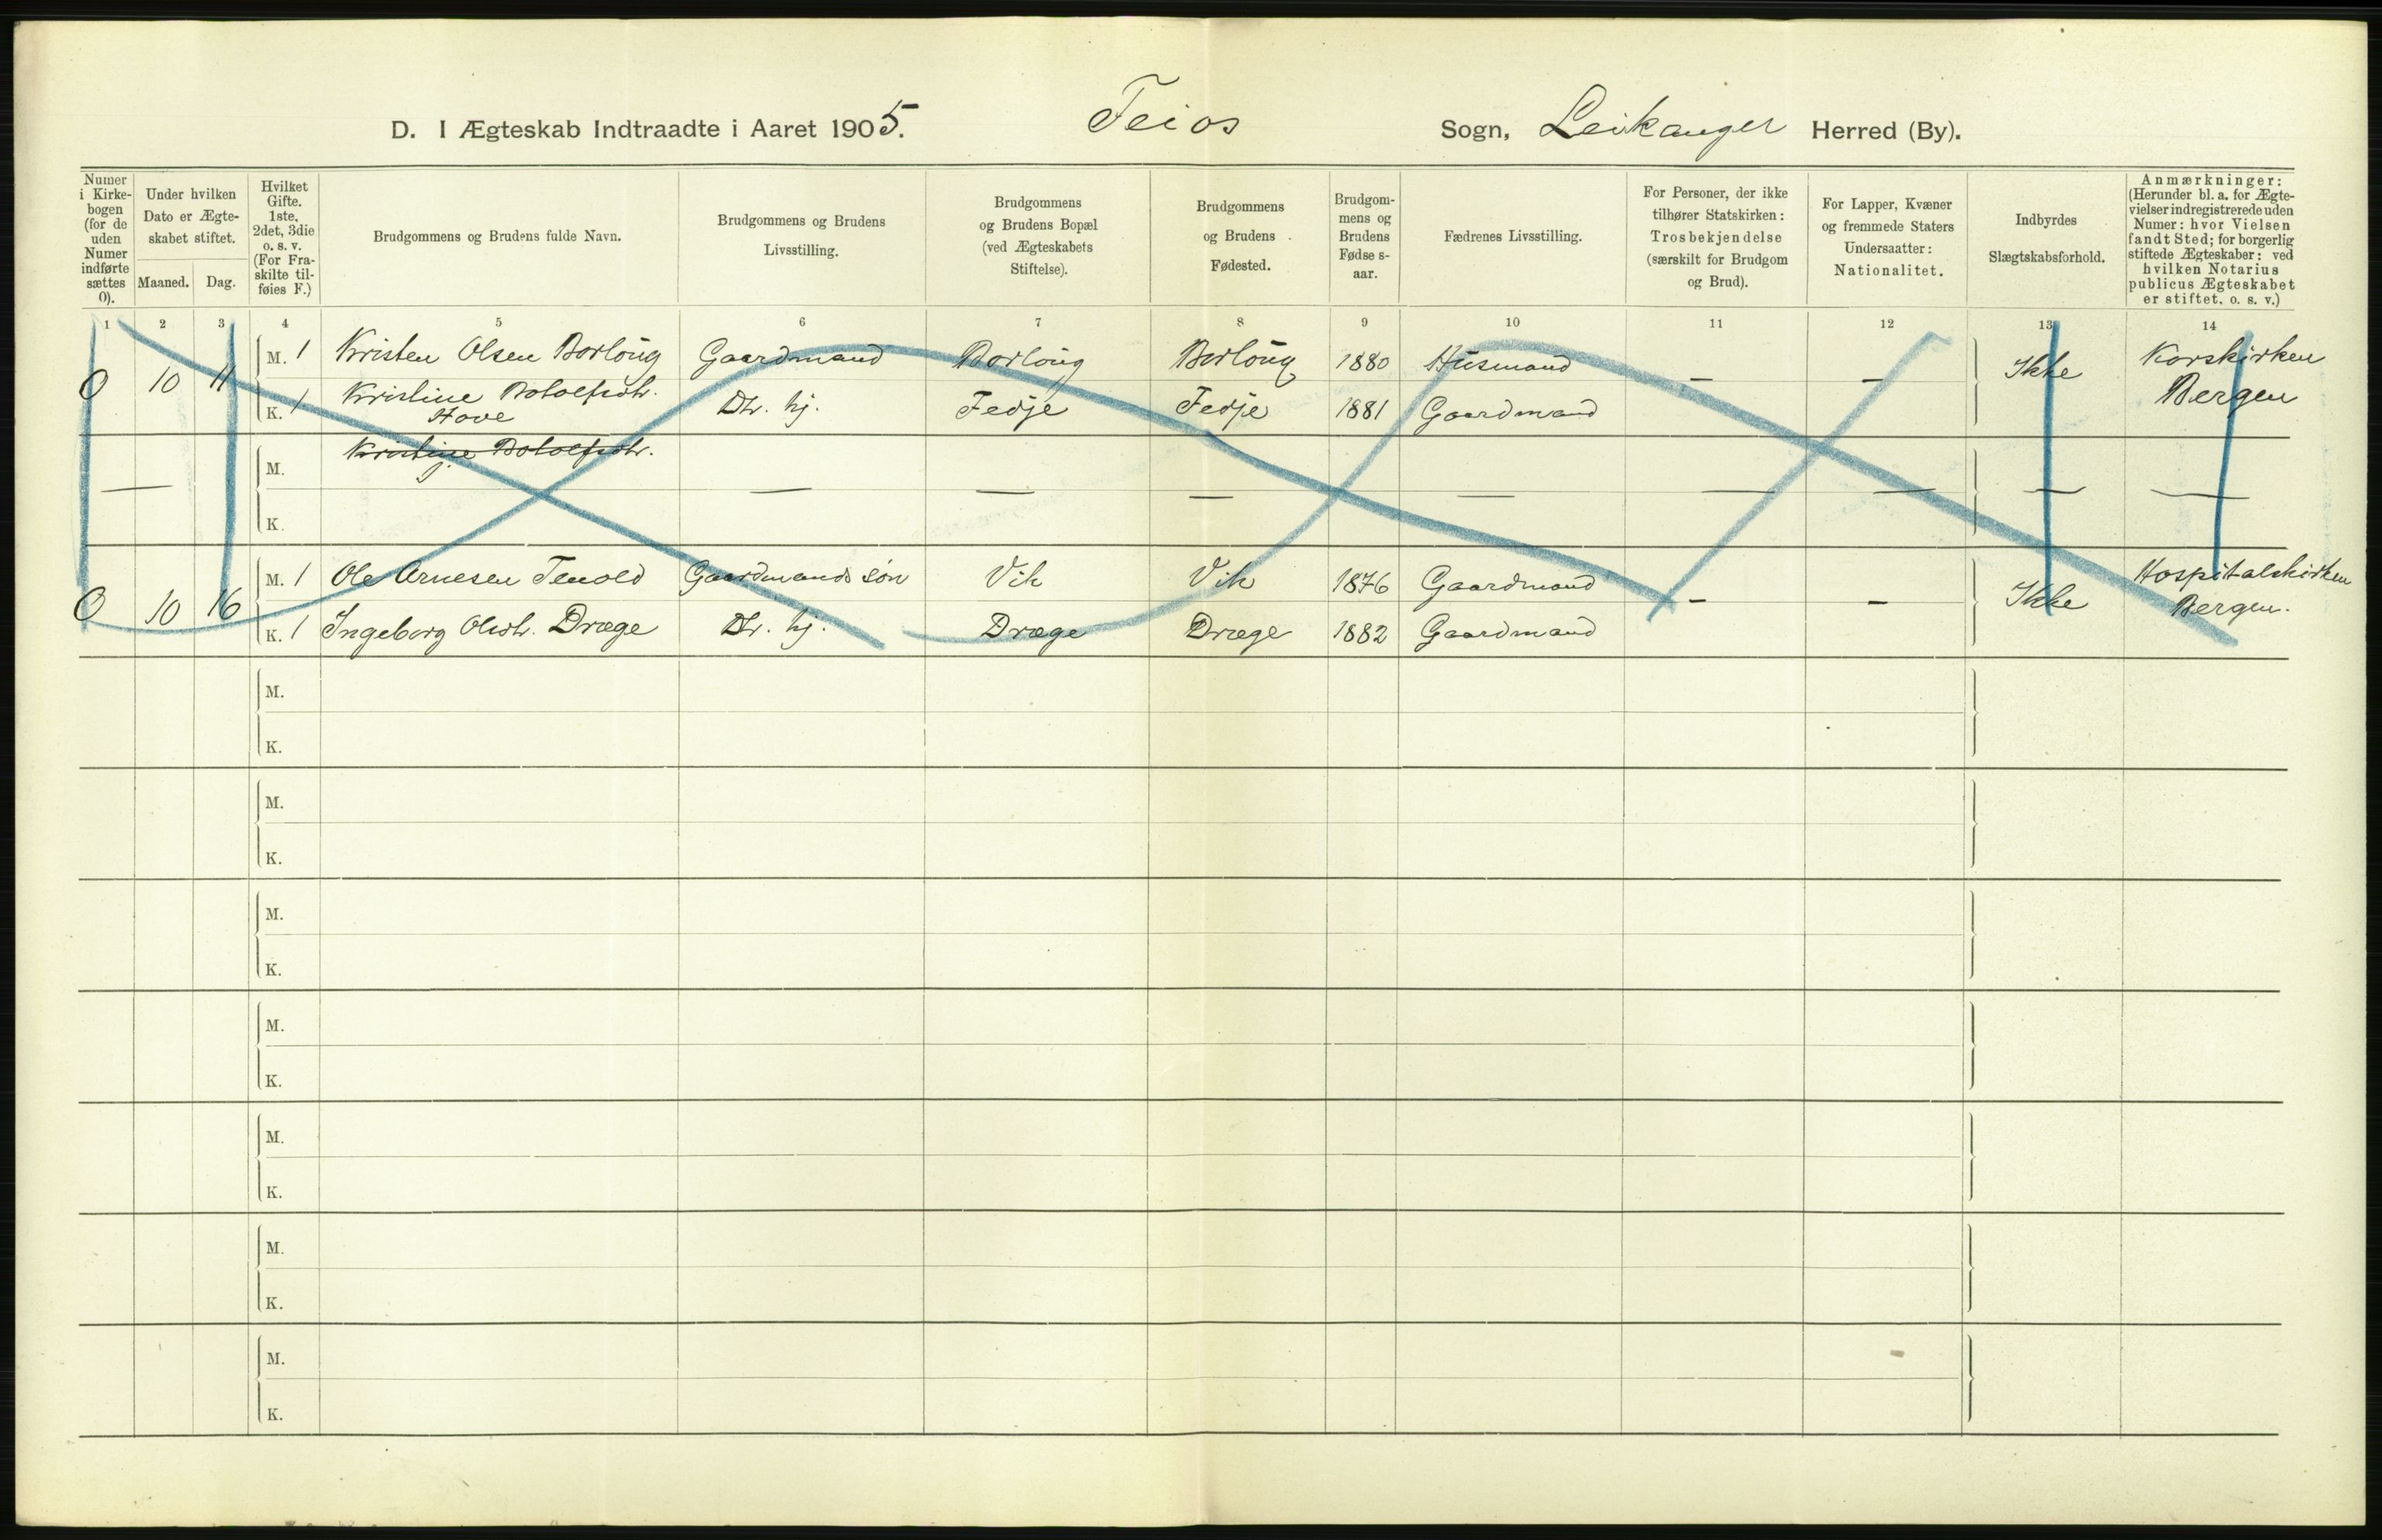 D. I Ægteskab Indtraadte i Aaret 1905. Feios Sogn, Leikanger Herred (By).
Numer i Kirkebogen (for de uden Numer indførte sættes 0).
Under hvilken Dato er Ægteskabet stiftet.
Maaned. Dag.
Hvilket Gifte. 1ste, 2det, 3die o. s. v. (For Fraskilte tilføies F.)
Brudgommens og Brudens fulde Navn.
Brudgommens og Brudens Livsstilling.
Brudgommens og Brudens Bopæl (ved Ægteskabets Stiftelse).
Brudgommens og Brudens Fødested.
Brudgommens og Brudens Fødselsaar.
Fædrenes Livsstilling.
For Personer, der ikke tilhører Statskirken: Trosbekjendelse (særskilt for Brudgom og Brud).
For Lapper, Kvæner og fremmede Staters Undersaatter: Nationalitet.
Indbyrdes Slægtskabsforhold.
Anmærkninger: (Herunder bl. a. for Ægtevielser indregistrerede uden Numer: hvor Vielsen fandt Sted; for borgerlig stiftede Ægteskaber: ved hvilken Notarius publicus Ægteskabet er stiftet. o. s. v.)
1 2 3 4 5 6 7 8 9 10 11 12 13 14
0 10 11 M. 1 Kristen Olsen Borlöug Gaardmand Borlöug Borlöug 1880 Husmand — — Ikke Korskirken Bergen
K. 1 Kristine Botolfsdtr. Hove Dtr. hj. Fedje Fedje 1881 Gaardmand
— M. Kristine Botolfsdtr. — — — — — — — —
K.
0 10 16 M. 1 Ole Arnesen Tenold Gaardmands søn Vik Vik 1876 Gaardmand — — Ikke Hospitalskirken Bergen.
K. 1 Ingeborg Olsdtr. Dræge Dtr. hj. Dræge Dræge 1882 Gaardmand
M.
K.
M.
K.
M.
K.
M.
K.
M.
K.
M.
K.
M.
K.